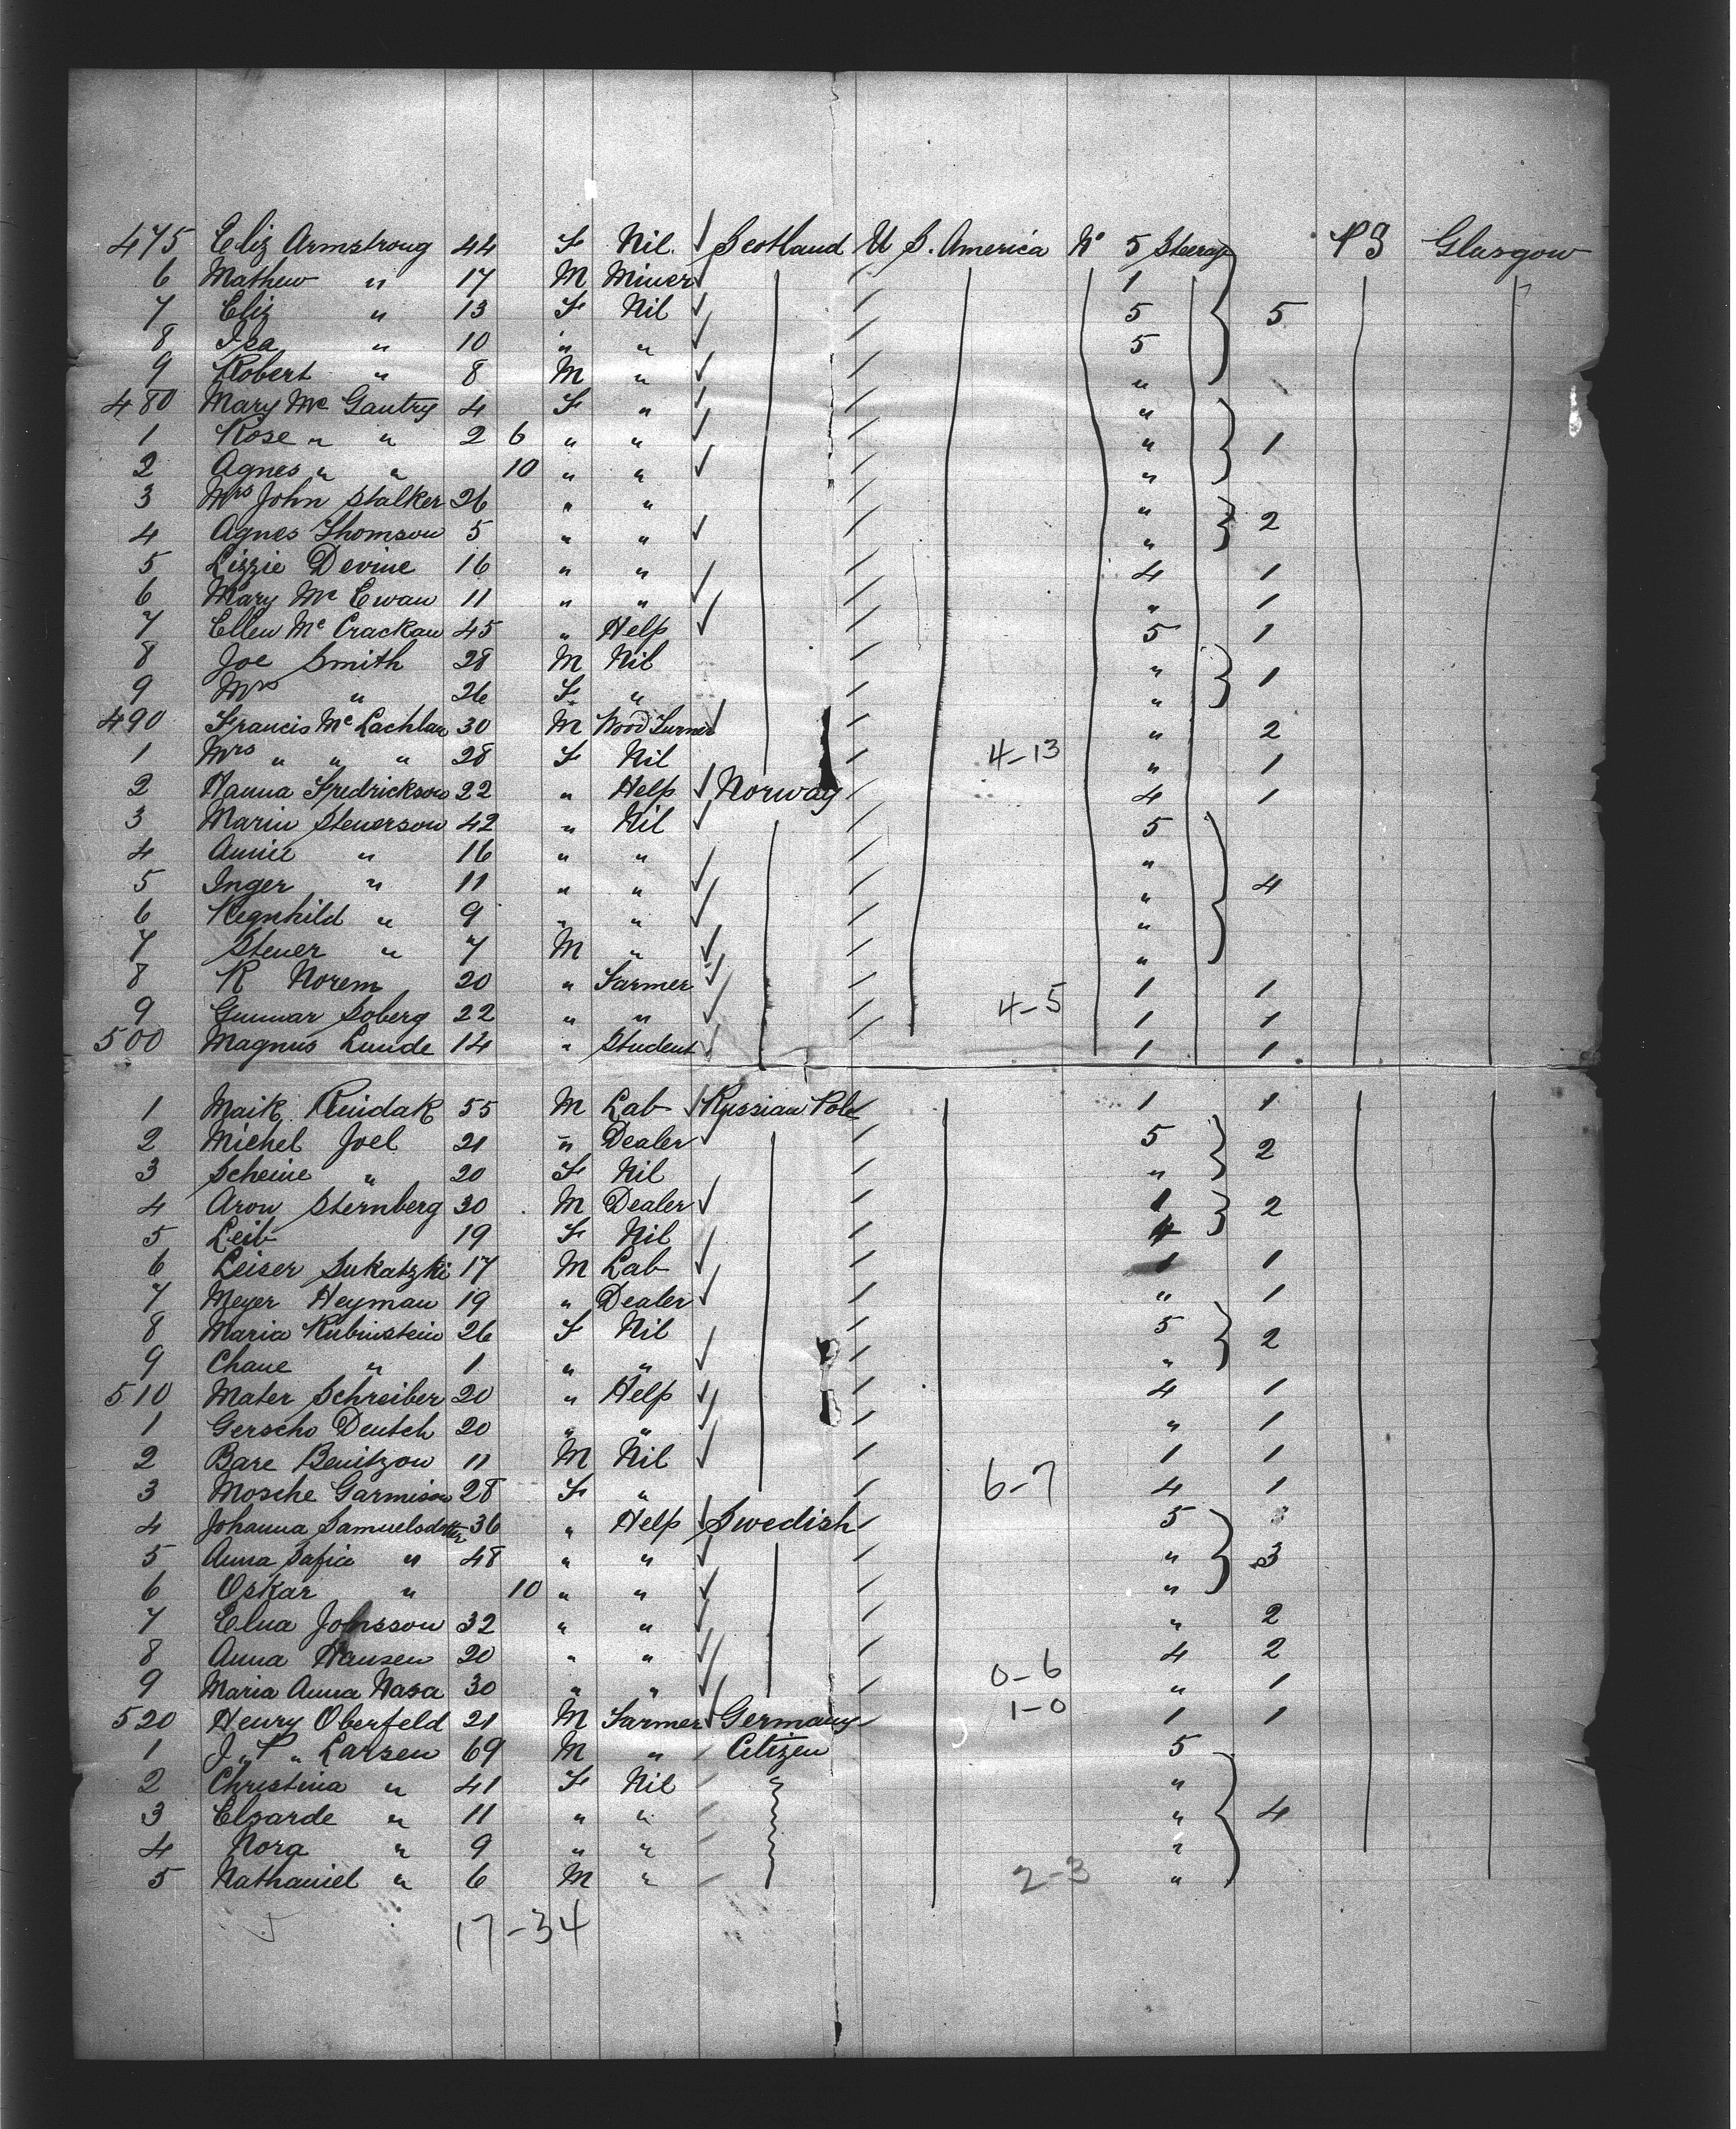 475 Eliz Armstrong 44 F Nil ✓ Scotland U S. America No 5 Steerage P S Glasgow
6 Mathew " 17 M Miner ✓ / 1
7 Eliz " 13 F Nil ✓ / 5 5
8 Isa " 10 " " ✓ / 5
9 Robert " 8 M " ✓ / "
480 Mary Mc Gantry 4 F " ✓ / "
1 Rose " " 2 6 " " ✓ / " 1
2 Agnes " " 10 " " ✓ / "
3 Mrs John Stalker 26 " " / "
4 Agnes Thomson 5 " " ✓ / " 2
5 Lizzie Devine 16 " " / 4 1
6 Mary Mc Ewan 11 " " ✓ / " 1
7 Ellen Mc Crackan 45 " Help ✓ / 5 1
8 Joe Smith 28 M Nil / "
9 Mrs " 26 F " / " 1
490 Francis Mc Lachlan 30 M Wood Turner ✓ / " 2
1 Mrs " " " 28 F Nil / 4-13 " 1
2 Hanna Fredrickson 22 " Help ✓ Norway / 4 1
3 Marin Stenerson 42 " Nil ✓ / 5
4 Annie " 16 " " ✓ / "
5 Inger " 11 " " ✓ / " 4
6 Regnhild " 9 " " ✓ / "
7 Stener " 7 M " ✓ / "
8 K Norem 20 " Farmer ✓ / 1 1
9 Gunnar Soberg 22 " " ✓ / 4-5 1 1
500 Magnus Lunde 14 " Student ✓ / 1 1
1 Maik Rindak 55 M Lab ✓ Russian Pole / 1 1
2 Michel Joel 21 " Dealer ✓ / 5
3 Scheine " 20 F Nil / " 2
4 Aron Sternberg 30 M Dealer ✓ / 1
5 Leib 19 F Nil ✓ / 4 2
6 Leiser Sukatzki 17 M Lab ✓ / 1 1
7 Meyer Heyman 19 " Dealer ✓ / " 1
8 Maria Rubinstein 26 F Nil ✓ / 5
9 Chane " 1 " " ✓ / " 2
510 Mater Schreiber 20 " Help ✓ / 4 1
1 Gerscho Deutch 20 " " ✓ / " 1
2 Bare Benitzow 11 M Nil ✓ / 1 1
3 Mosche Garmison 28 F " / 6-7 4 1
4 Johanna Samuelsdotter 36 " Help ✓ Swedish / 5
5 Anna Safia " 48 " " ✓ / " 3
6 Oskar " 10 " " ✓ / "
7 Elna Johsson 32 " " ✓ / " 2
8 Anna Hansen 20 " " ✓ / 4 2
9 Maria Anna Nasa 30 " " ✓ / 0-6 " 1
520 Henry Oberfeld 21 M Farmer ✓ Germany / 1-0 1 1
1 J " P " Larsen 69 M " Citizen 5
2 Christina " 41 F Nil "
3 Elsarde " 11 " " " 4
4 Nora " 9 " " "
5 Nathaniel " 6 M " 2-3 "
17-34